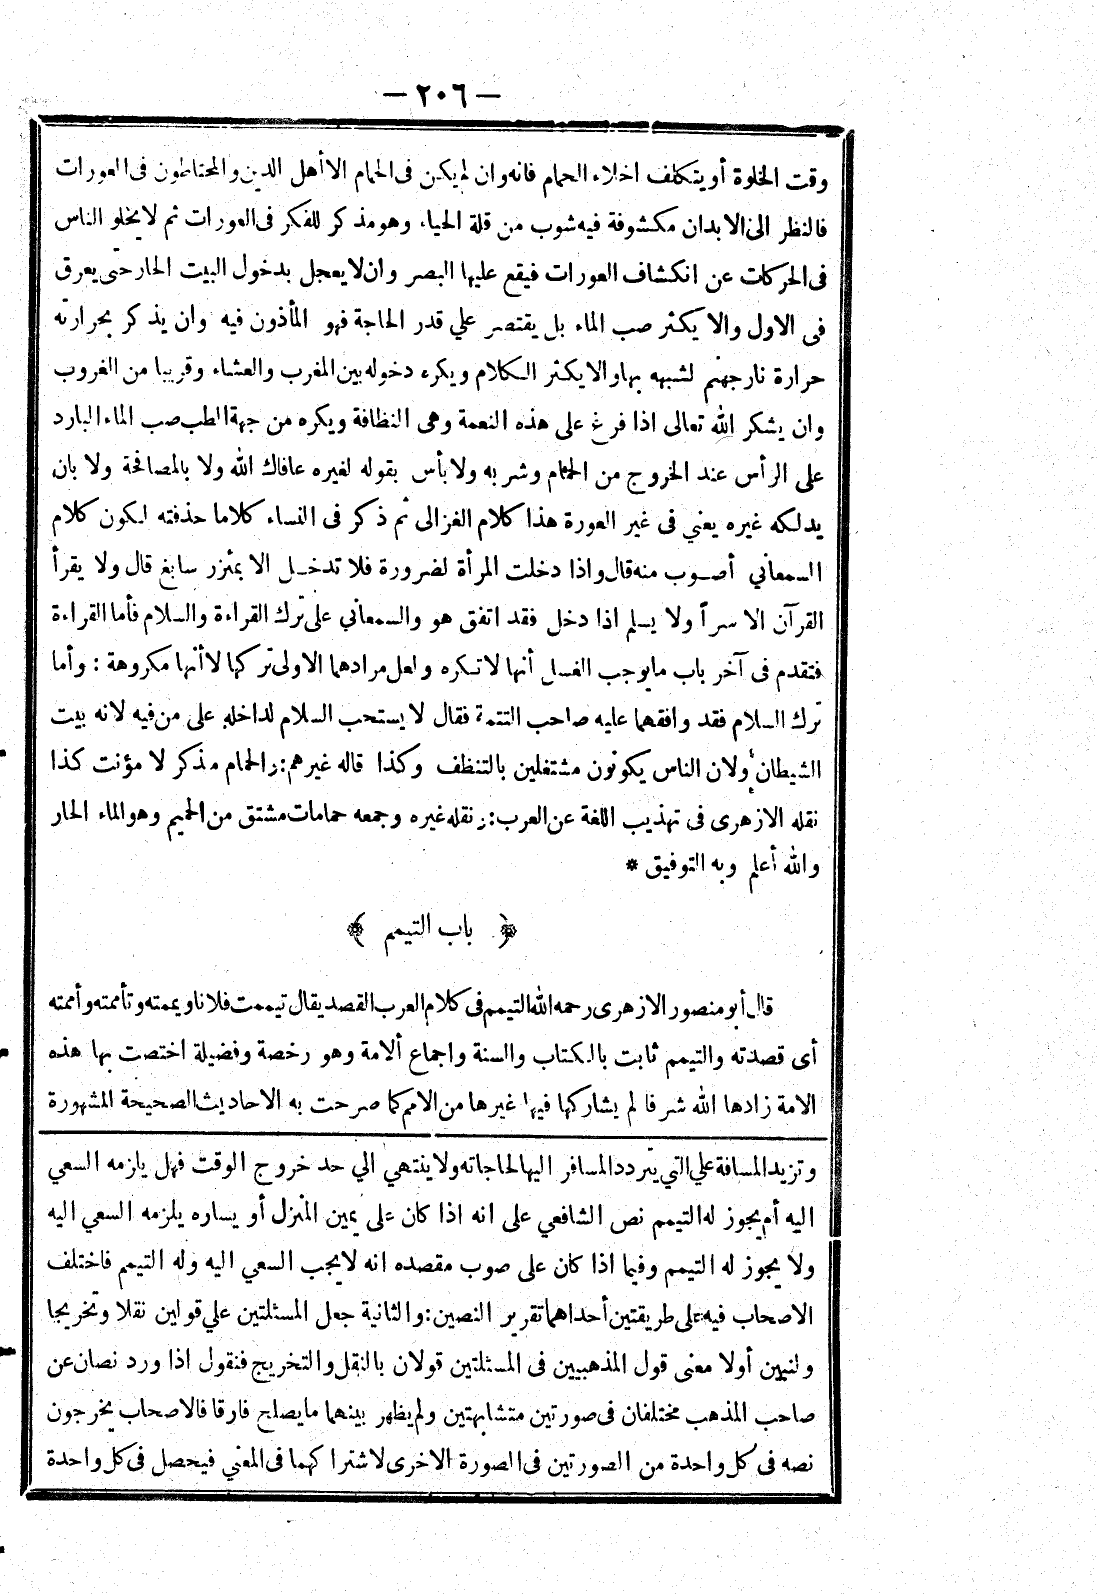 — ٢٠٦ —
وقت الخلوة أو يتكلف اخلاء الحمام فانه وان لم يكن فى الحمام الا أهل الدين والمحتاطون فى العورات
فالنظر الى الابدان مكشوفة فيه شوب من قلة الحياء وهو مذكر للفكر فى العورات ثم لا يخلو الناس
فى الحركات عن انكشاف العورات فيقع عليها البصر وان لا يعجل بدخول البيت الحار حتى يعرق
فى الاول والا يكثر صب الماء بل يقتصر علي قدر الحاجة فهو المأذون فيه وان يذكر بحرارته
حرارة نار جهنم لشبهه بها والا يكثر الكلام ويكره دخوله بين المغرب والعشاء وقريبا من الغروب
وان يشكر الله تعالى اذا فرغ على هذه النعمة وهى النظافة ويكره من جهة الطب صب الماء البارد
على الرأس عند الخروج من الحمام وشربه ولا بأس بقوله لغيره عافاك الله ولا بالمصافحة ولا بان
يدلكه غيره يعني فى غير العورة هذا كلام الغزالى ثم ذكر فى النساء كلاما حذفته لكون كلام
السمعاني أصوب منه قال واذا دخلت المرأة لضرورة فلا تدخل الا بمئزر سابغ قال ولا يقرأ
القرآن الا سراً ولا يسلم اذا دخل فقد اتفق هو والسمعاني على ترك القراءة والسلام فأما القراءة
فتقدم فى آخر باب ما يوجب الغسل أنها لا تكره ولعل مرادهما الاولى تركها لا أنها مكروهة : وأما
ترك السلام فقد وافقهما عليه صاحب التتمة فقال لا يستحب السلام لداخله على من فيه لانه بيت
الشيطان ولان الناس يكونون مشتغلين بالتنظف وكذا قاله غيرهم: والحمام مذكر لا مؤنث كذا
نقله الازهرى فى تهذيب اللغة عن العرب: ونقله غيره وجمعه حمامات مشتق من الحميم وهو الماء الحار
والله أعلم وبه التوفيق *
﴿ باب التيمم ﴾
قال أبو منصور الازهرى رحمه الله التيمم فى كلام العرب القصد يقال تيممت فلانا ويممته وتأممته وأممته
أى قصدته والتيمم ثابت بالكتاب والسنة واجماع ألامة وهو رخصة وفضيلة اختصت بها هذه
الامة زادها الله شرفا لم يشاركها فيها غيرها من الامم كما صرحت به الاحاديث الصحيحة المشهورة
وتزيد المسافة علي التي يتردد المسافر اليها لحاجاته ولا ينتهي الي حد خروج الوقت فهل يلزمه السعي
اليه أم يجوز له التيمم نص الشافعي على انه اذا كان على يمين المنزل أو يساره يلزمه السعي اليه
ولا يجوز له التيمم وفيما اذا كان على صوب مقصده انه لا يجب السعي اليه وله التيمم فاختلف
الاصحاب فيه على طريقتين أحداهما تقرير النصين: والثانية جعل المسئلتين علي قولين نقلا وتخريجا
ولنبين أولا معنى قول المذهبيين فى المسئلتين قولان بالنقل والتخريج فنقول اذا ورد نصان عن
صاحب المذهب مختلفان فى صورتين متشابهتين ولم يظهر بينهما ما يصلح فارقا فالاصحاب يخرجون
نصه فى كل واحدة من الصورتين فى الصورة الاخرى لاشتراكهما فى المعني فيحصل فى كل واحدة